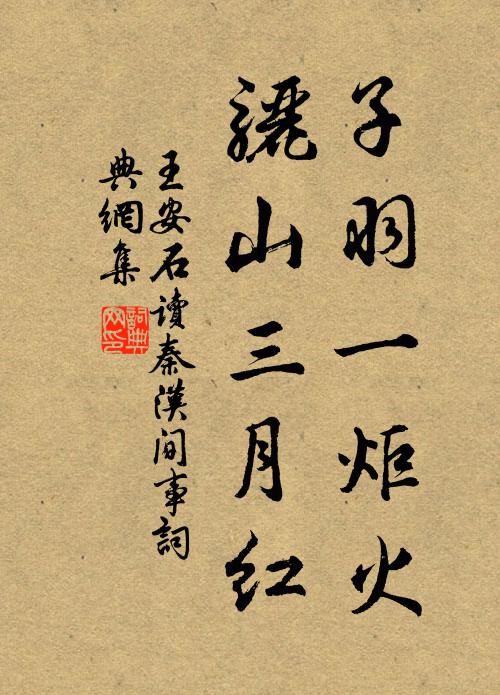 子羽一炬火
驪山三月红
王安石讀秦漢间事詞
典網集
詞典
网印